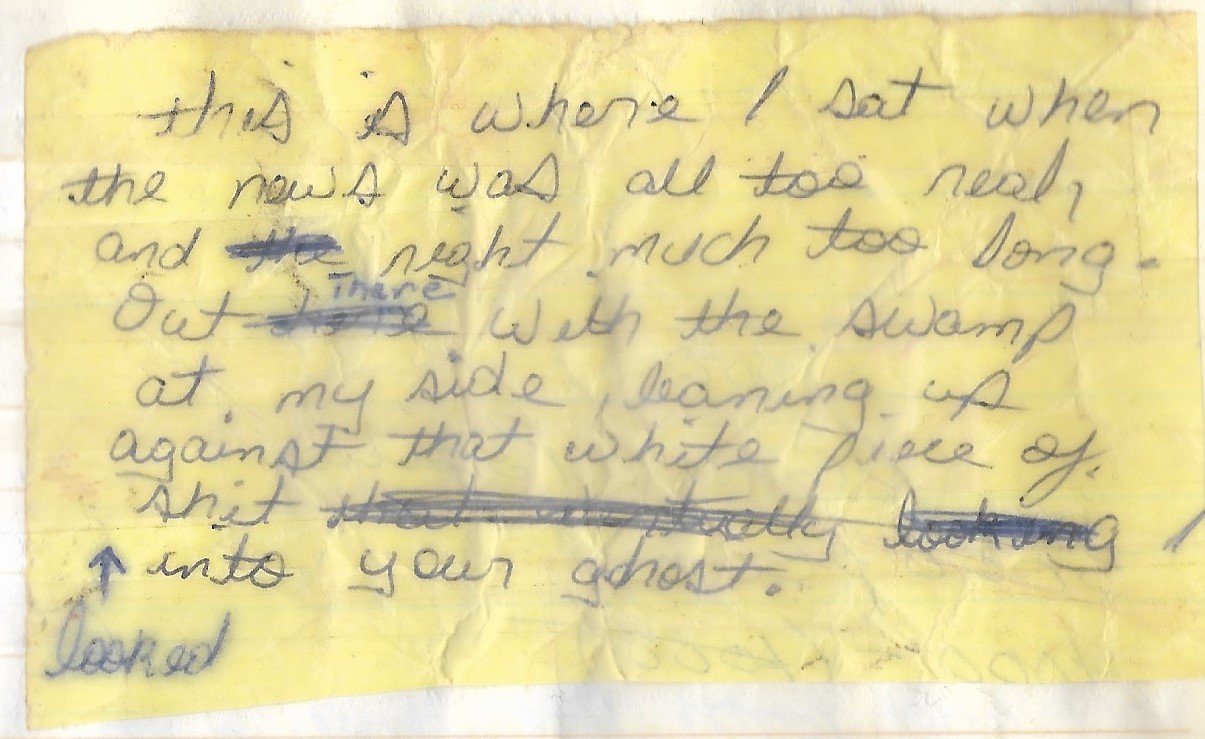 this is where I sat when
the news was all too real,
and the night much too long.
There
Out with the swamp
at my side, leaning up
against that white piece of
shit that eventually looking I
↑ into your ghost.
looked